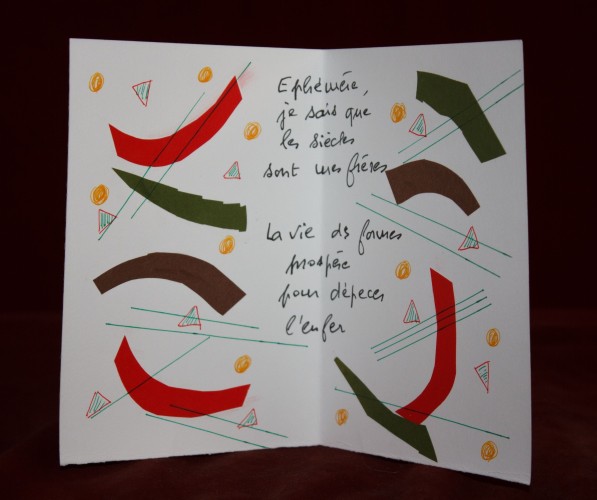 Ephémère,
je sais que
les siècles
sont mes frères
La vie des formes
prospère
pour dépecer
l'enfer